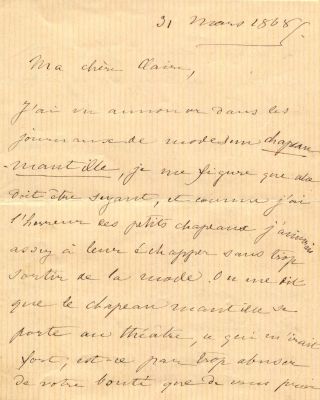 31 Mars 1868
Ma chère Claire,
J'ai vu annoncer dans les
journaux de modes un chapeau
mantille, je me figure que cela
doit être seyant, et comme j'ai
l'horreur des petits chapeaux j'aimerais
assez à leur échapper sans trop
sortir de la mode. On me dit
que le chapeau mantille se
porte au théâtre, ce qui m'irait
fort, est-ce par trop abuser
de votre bonté que de vous prier